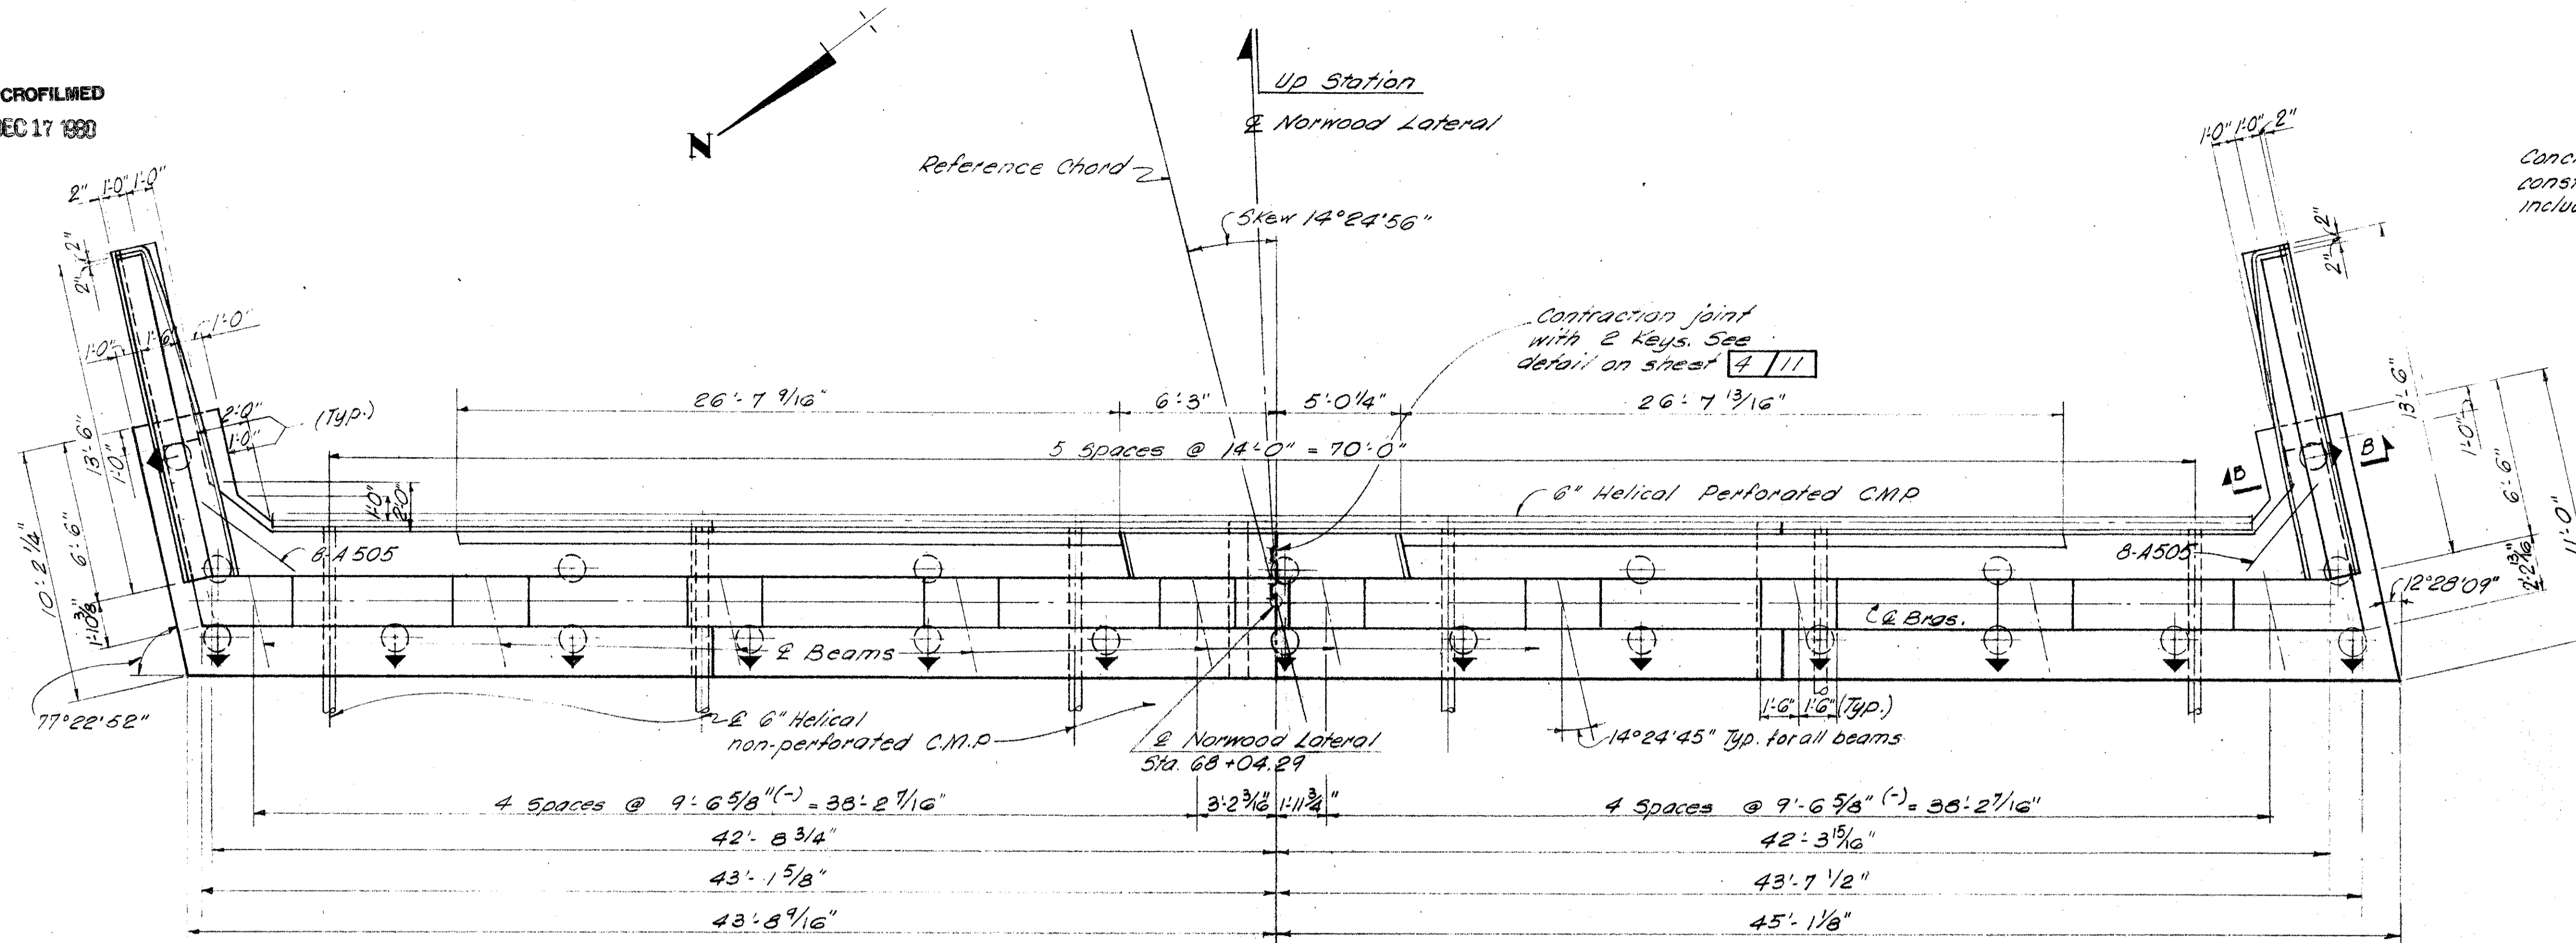 CROFILMED
DEC 17 1980
N
Up Station
℄ Norwood Lateral
Reference Chord
Skew 14°24'56"
Conc
const
includ
2" 1'-0" 1'-0"
1'-0" 1'-0" 2"
2"
2"
2"
2"
1'-0" 1'-6" 1'-0"
Contraction joint
with 2 Keys. See
detail on sheet 4 / 11
26'-7 9/16" 6'-3" 5'-0 1/4" 26'-7 13/16"
2'-0"
1'-0"
(Typ.)
5 Spaces @ 14'-0" = 70'-0"
13'-6"
1'-0"
6'-6"
10'-2 1/4"
1'-10 3/8"
1'-0"
2'-0"
6" Helical Perforated C.M.P.
B B
13'-6"
1'-0"
6'-6"
11'-0"
2'-2 13/16"
8-A505
8-A505
12°28'09"
℄ Brgs.
℄ Beams
77°22'52"
℄ 6" Helical
non-perforated C.M.P.
℄ Norwood Lateral
Sta. 68+04.29
1'-6" 1'-6" (Typ.)
14°24'45" Typ. for all beams
4 Spaces @ 9'-6 5/8"(-) = 38'-2 7/16" 3'-2 3/16" 1'-11 3/4" 4 Spaces @ 9'-6 5/8"(-) = 38'-2 7/16"
42'-8 3/4" 42'-3 15/16"
43'-1 5/8" 43'-7 1/2"
43'-8 9/16" 45'-1 1/8"